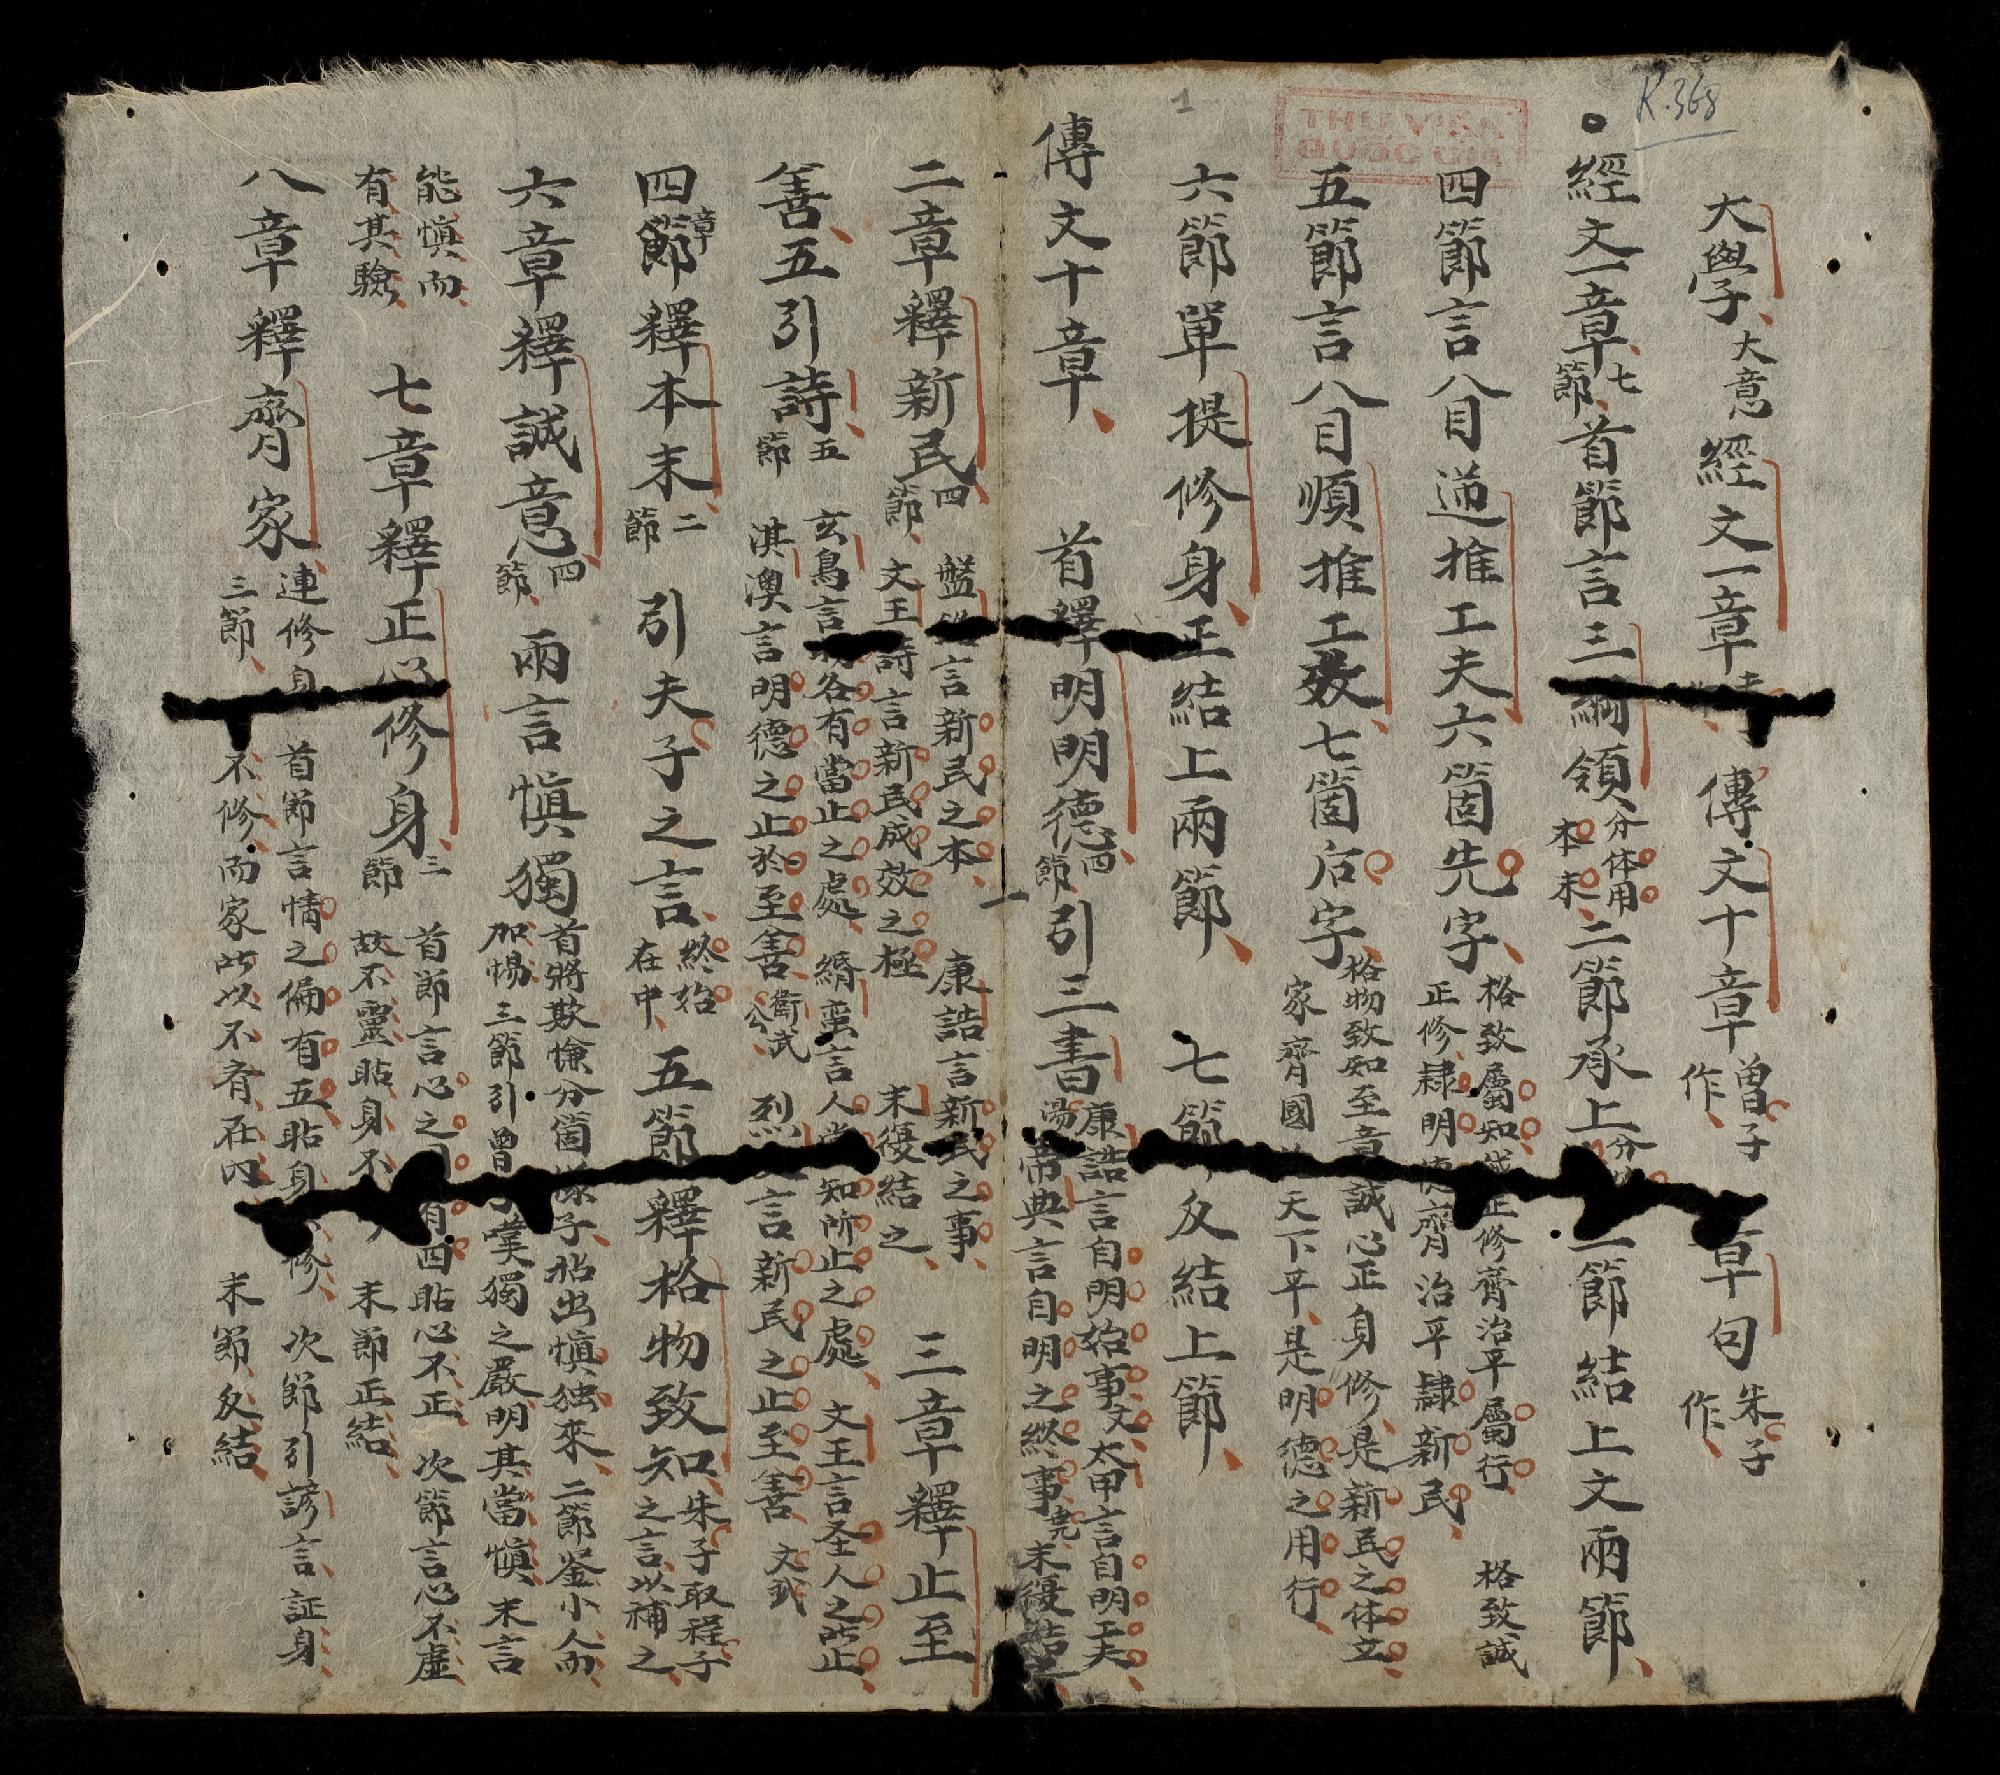 K.368
THƯ VIỆN
QUỐC GIA
1
大學大意 經文一章 傳文十章曾子作 章句朱子作
經文一章七節首節言三綱領分体用本末二節承上 一節結上文兩節
四節言八目逆推工夫六箇先字格致屬知 正修齊治平屬行 正修隸明 齊治平隸新民 格致誠
五節言八目順推工效七箇后字格物致知至意誠心正身修是新民之体立 家齊國 天下平是明德之用行
六節單提修身正結上兩節 七節反結上節
傳文十章 首釋明明德四節引三書康誥言自明始事文 太甲言自明工夫湯 帝典言自明之終事堯 末復結之
一
二章釋新民四節 盤 言新民之本 康誥言新民之事 文王詩言新民成效之極 末復結之 三章釋止至
善五引詩五節 玄鳥言 物各有當止之處 緡蛮言人當知所止之處 文王言圣人之所止 淇澳言明德之止於至善衛武公 烈文言新民之止至善文武
四章節釋本末二節 引夫子之言終始在中 五節釋格物致知朱子取程子之言以補之
六章釋誠意四節 兩言慎獨首將欺慊分箇 子拈出慎独來 二節鉴小人而加惕 三節引曾子嘆獨之嚴明其當慎 末言
能慎而有其驗 七章釋正心修身三節 首節言心之 有四貼心不正 次節言心不虛故不靈貼身不 末節正結
八章釋齊家連修身三節 首節言情之偏有五貼身不修 次節引諺言証身不修而家 以不齊在內 末節反結